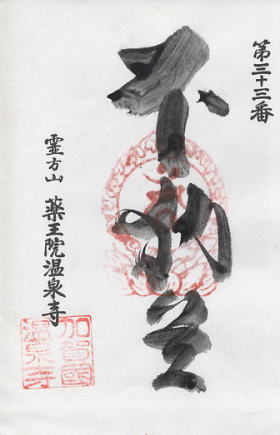 第三十三番
不動尊
霊方山 薬王院温泉寺
加賀國
温泉寺